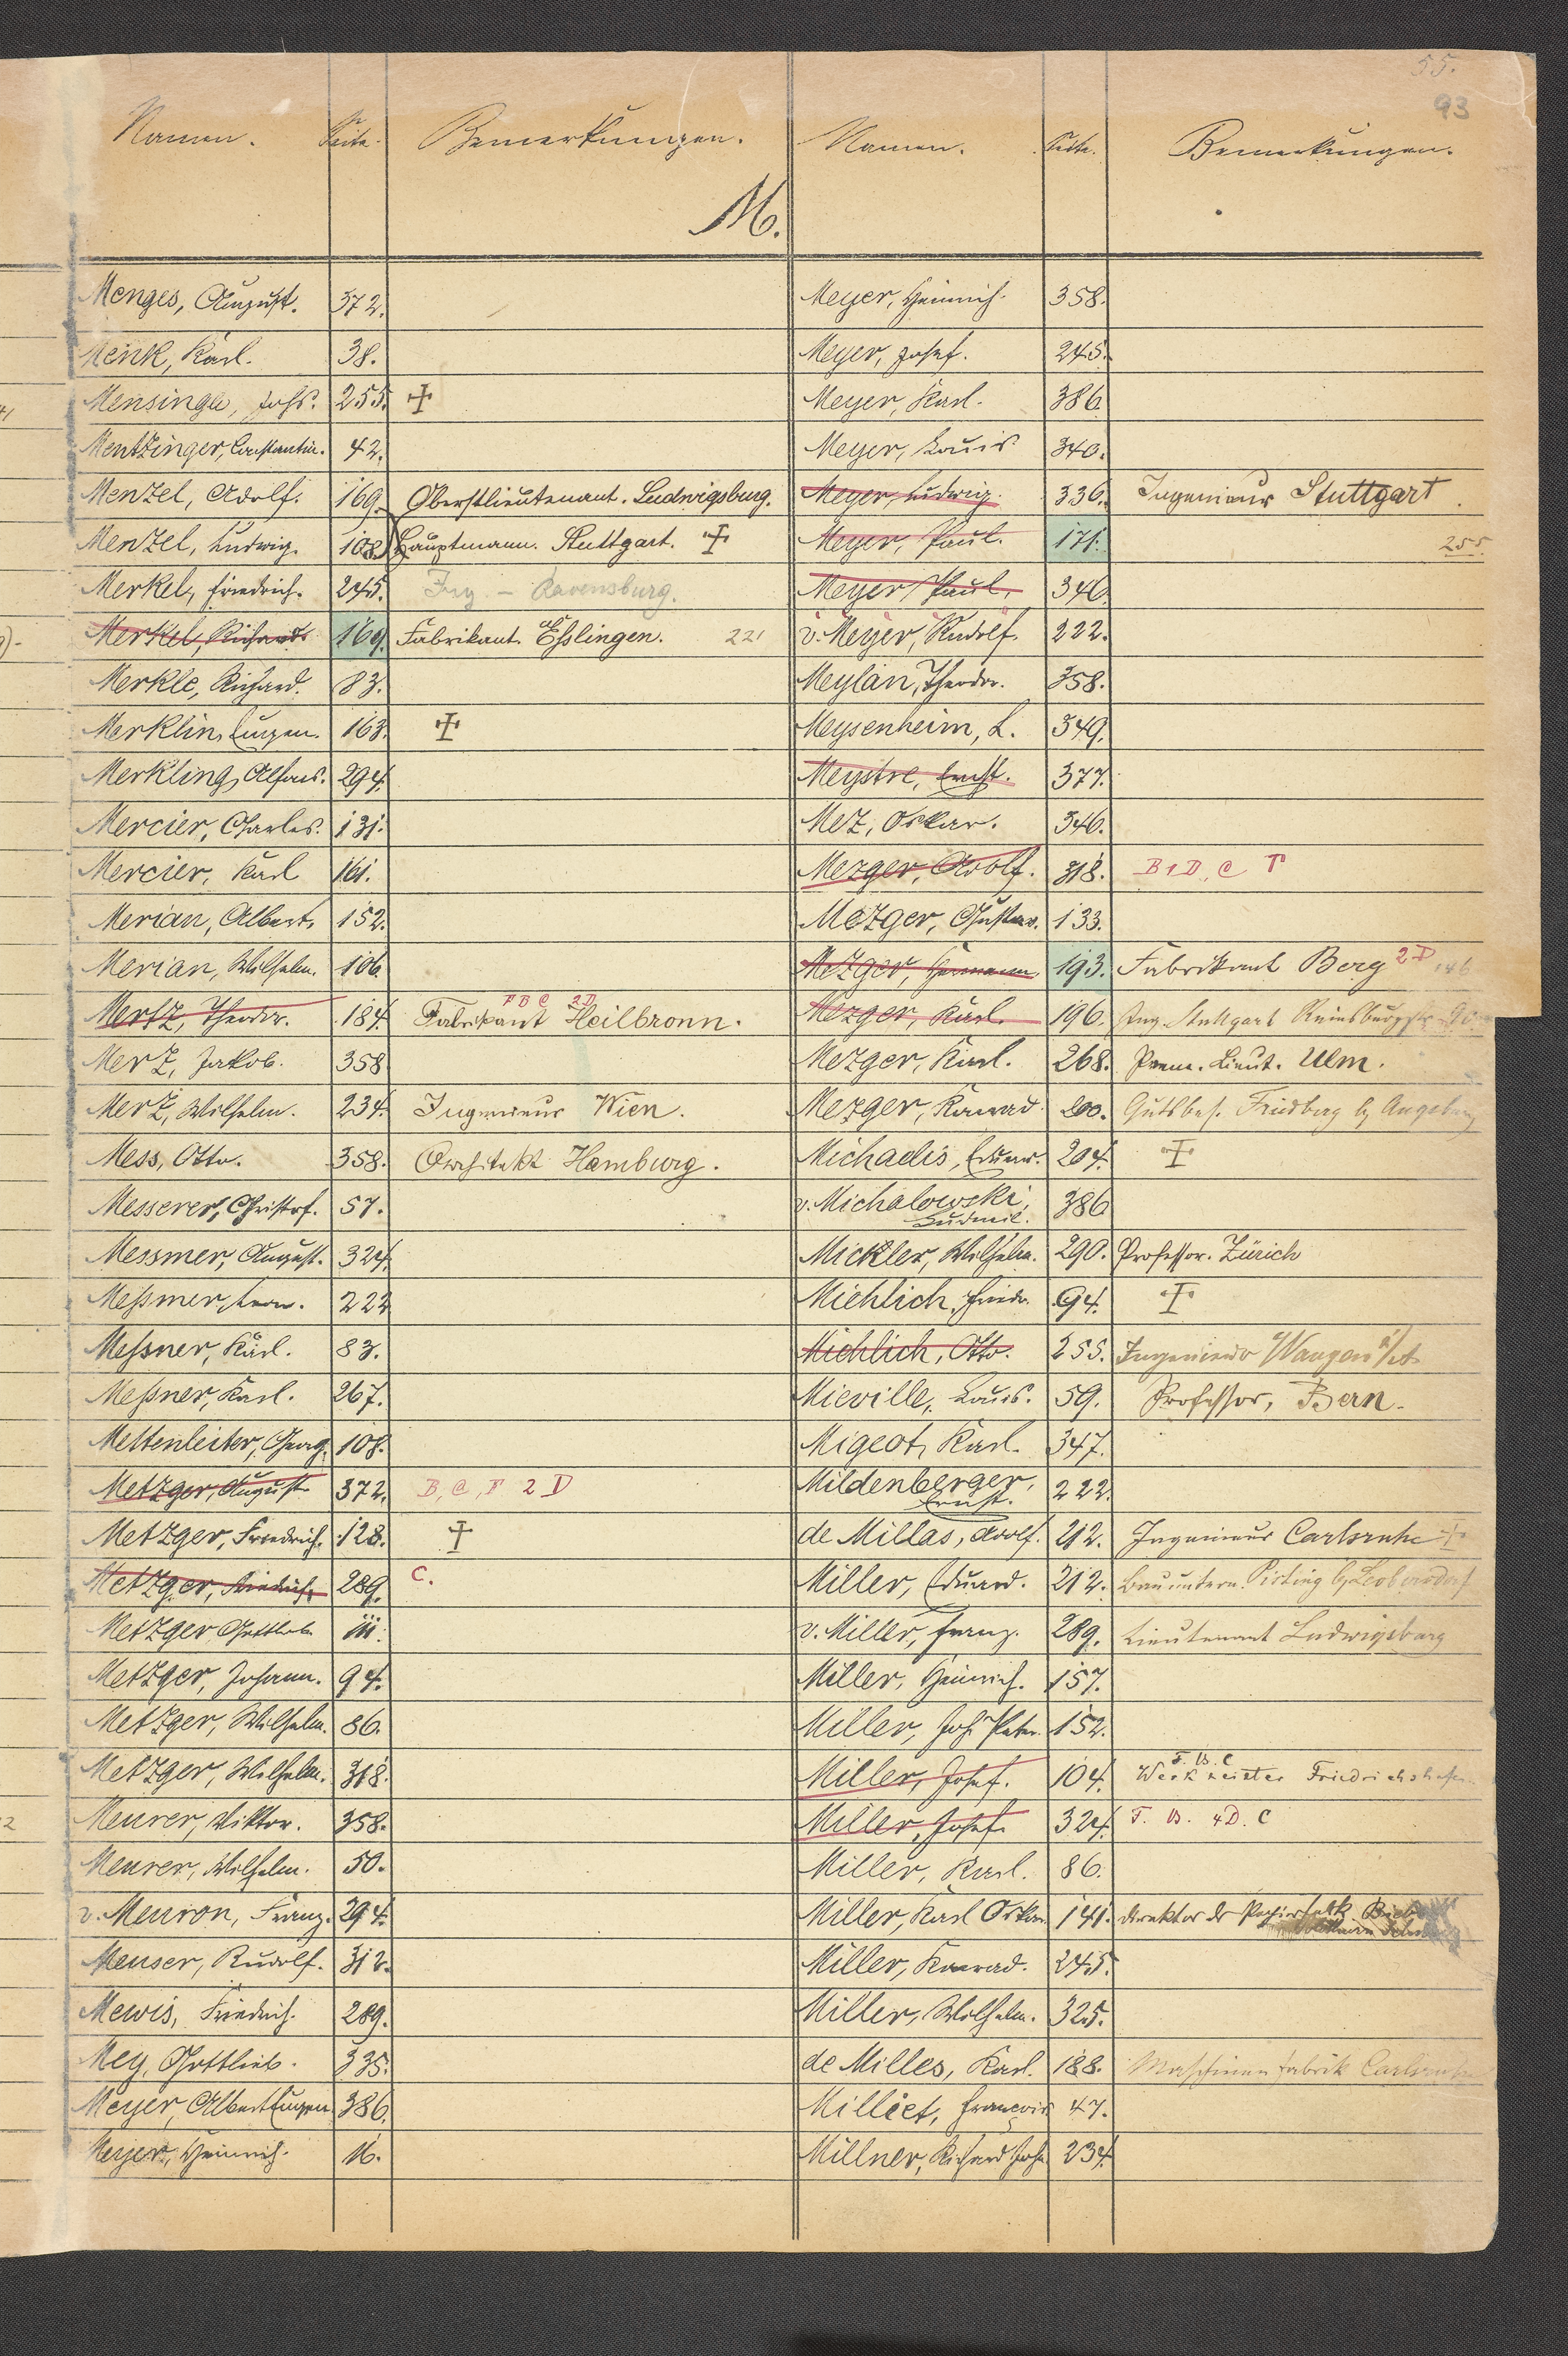 55.
93
Namen. Seite. Bemerkungen. Namen. Seite. Bemerkungen.
M.
Menges, August. 372.
Menk, Karl. 38.
Mensinga, Johs. 255. ✝
Mentzinger, Constantin. 42.
Menzel, Adolf. 169. Oberstlieutenant. Ludwigsburg.
Menzel, Ludwig. 108. Hauptmann. Stuttgart. ✝
Merkel, Friedrich. 245. Ing – Ravensburg.
Merkel, Richard. 169. Fabrikant. Eßlingen. 221
Merkle, Richard. 83.
Merklin, Eugen. 163. ✝
Merkling, Alfons. 294.
Mercier, Charles. 131.
Mercier, Karl 161.
Merian, Albert. 152.
Merian, Wilhelm. 106
F B C 2D
Mertz, Theodor. 184. Fabrikant Heilbronn.
Merz, Jakob. 358
Merz, Wilhelm. 234. Ingenieur Wien.
Mess, Otto. 358. Architekt Hamburg.
Messerer, Christof. 57.
Messmer, August. 324.
Meßmer, Herm. 222
Meßner, Karl. 83.
Meßner, Karl. 267.
Mettenleiter, Georg. 108.
Metzger, August 372. B, C, F 2 D
Metzger, Friedrich. 128. ✝
Metzger, Friedrich. 289. C.
Metzger Gottlob. 111.
Metzger, Johann. 94.
Metzger, Wilhelm. 86.
Metzger, Wilhelm. 318.
Meurer, Viktor. 358.
Meurer, Wilhelm. 50.
v. Meuron, Franz. 294.
Meuser, Rudolf. 312.
Mewis, Friedrich. 289.
Mey, Gottlieb. 335.
Meyer, Albert Eugen. 386.
Meyer, Heinrich. 16.
Meyer, Heinrich. 358.
Meyer, Josef. 245.
Meyer, Karl. 386.
Meyer, Louis 340.
Meyer, Ludwig. 336. Ingenieur Stuttgart.
Meyer, Paul. 171. 255
Meyer, Paul, 346.
v. Meyer, Rudolf. 222.
Meylan, Theodor. 358.
Meysenheim, L. 349.
Meystre, Ernst. 377.
Mez, Oskar. 346.
Mezger, Adolf. 318. B 1 D, C F
Mezger, Gustav. 133.
Mezger, Hermann. 193. Fabrikant Berg 2D 146
Mezger, Karl. 196. Ing. Stuttgart
Mezger, Karl. 268. Prem. Lieut. Ulm.
Mezger, Konrad. 200. Gutsbes. Friedberg b/ Augsburg
Michaelis, Eduard. 204. ✝
v. Michalowski, 386
Ludmil.
Mickler, Wilhelm. 290. Professor. Zürich
Miehlich, Friedr. 94. ✝
Miehlich, Otto. 255. Ingenieur Wangen
Mieville, Louis. 59. Professor, Bern.
Migeot, Karl. 347.
Mildenberger, 222.
Ernst.
de Millas, Adolf. 212. Ingenieur Carlsruhe ✝
Miller, Eduard. 212. Bauuntern. Pisting b/ Leobersdorf
v. Miller, Franz. 289. Lieutenant Ludwigsburg
Miller, Heinrich. 157.
Miller, Joh. Peter. 152.
F. B. C
Miller, Josef. 104. Werkmeister Friedrichshafen
Miller, Josef. 324. F. B. 4D. C
Miller, Karl. 86.
Miller, Karl Oskar. 141. Direktor der Papierfabk
Miller, Konrad. 245.
Miller, Wilhelm. 325.
de Milles, Karl. 188. Maschinenfabrik Carlsruhe
Milliet, François 47.
Millner, Richard Joh. 234.